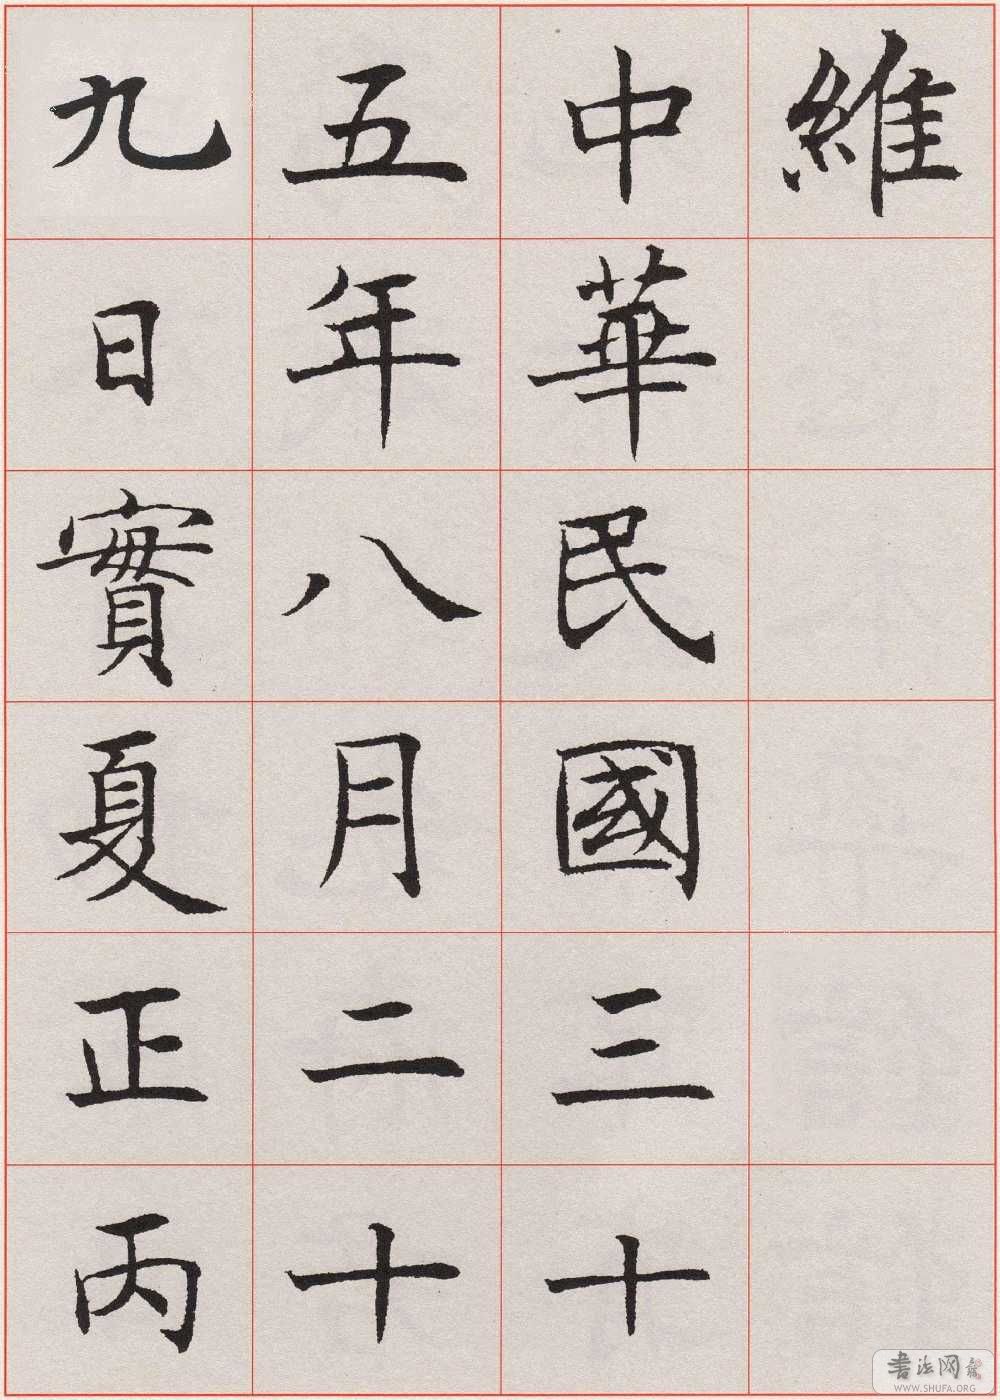 維
中華民國三十
五年八月二十
九日實夏正丙
書法网
WWW.SHUFA.ORG